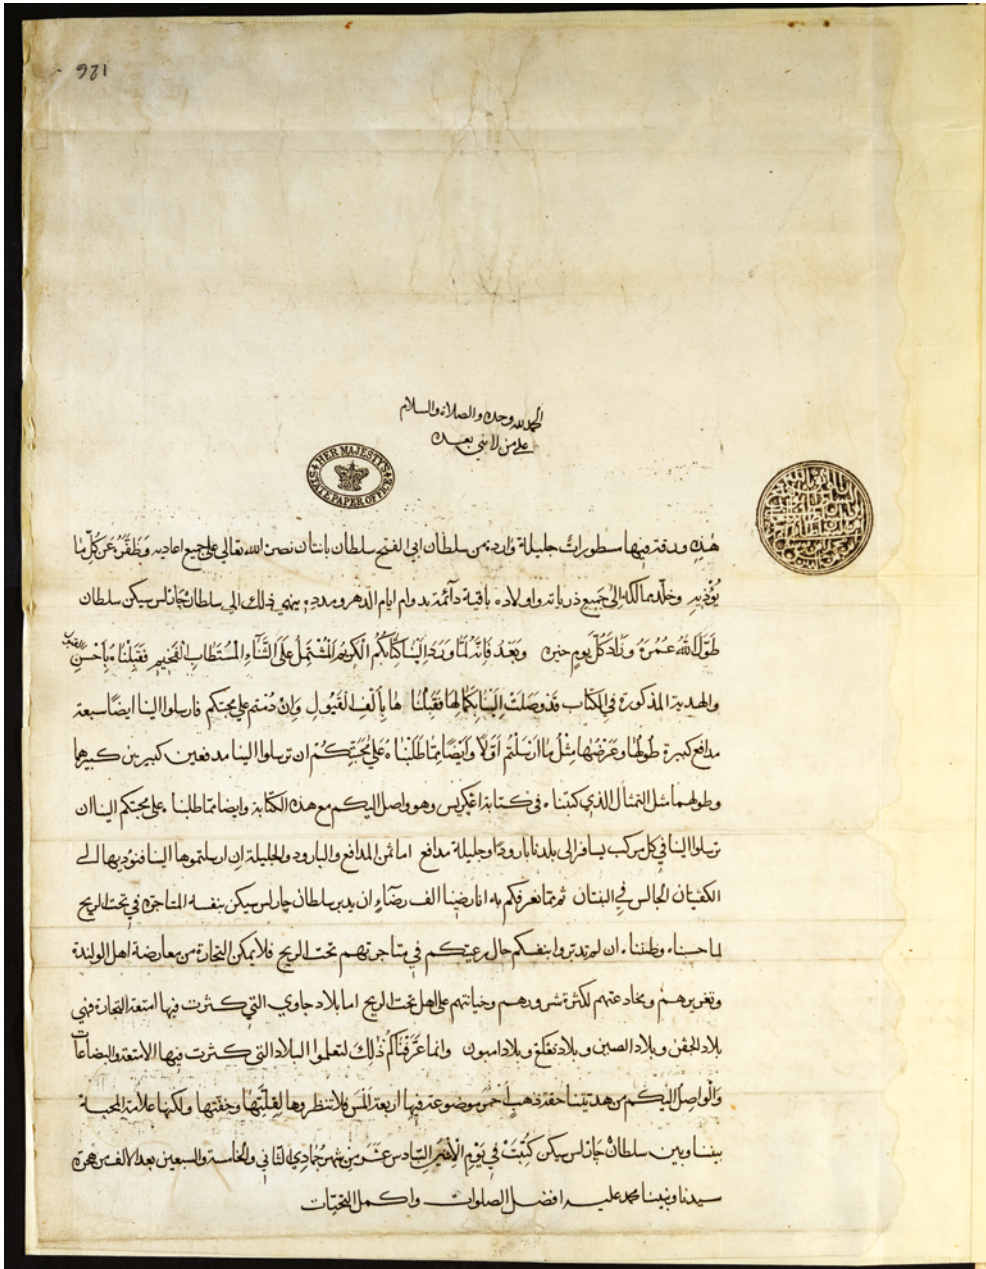 126
الحمد لله وحده والصلاة والسلام
على من لا نبي بعده
HER MAJESTY'S
STATE PAPER OFFICE
هٰذِهِ ورقة فيها سطورات جليلة واردة من سلطان ابي الفتح سلطان بانتان نصره الله تعالي على جميع اعاديه وظفّره عن كلّ ما
يُؤْذيهِ وخلّد ممالكه الى جميع ذرياته واولاده باقية دآئمة بدوام ايام الدهر ومدده ينهي ذلك الى سلطان چارلس سيكن سلطان
طوّل اللّه عمره وزاد كلّ يوم خيره وبعد فانّه لمّا ورد الينا كتابكم الكريم المشتمل على الثنآء المستطاب الفخيم فقبلناه باحسن القبول
والهدية المذكورة في الكتاب قد وصلت الينا بكمالها فقبلنا ها بألف القبول وان دمتم على محبتكم فارسلوا الينا ايضا سبعة
مدافع كبيرة طولها وعرضها مثل ما ارسلتم أوّلاً وأيضا ممّا طلبناه على محبّتكم ان ترسلوا الينا مدفعين كبيرين كبيرها
وطولهما مثل التمثال الذي كتبناه في كتابة اغكريس وهو واصل اليكم مع هذه الكتابة وايضا مما طلبناه على محبتكم الينا ان
ترسلوا الينا في كل مركب يسافر الى بلدنا بارودا وجليلة مدافع اما ثمن المدافع والبارود والجليلة ان ارسلتموها الينا فنوديها الى
الكفيتان الجالس في البنتان ثم مما نعرفكم به انا رضينا الف رضآء ان يدبر سلطان چارلس سيكن بنفسه المتاجرة في تحت الريح
لما حسبناه وظنناه ان لم تدبروا بنفسكم حال رعيتكم في متاجرتهم تحت الريح فلا يمكن التجارة من معارضة اهل الولندة
وتغريرهم ومخادعتهم لكثرة شرورهم وخيانتهم على اهل تحت الريح اما بلاد جاوي التي كثرت فيها امتعة التجارة فهي
بلاد الجفن وبلاد الصين وبلاد تغكغ وبلاد امبون وانما عرّفناكم ذلك لتعلموا البلاد التي كثرت فيها الامتعة والبضاعات
والواصل اليكم من هديتنا حقة ذهب احمر موضوعة فيها اربعة المس فلا تنظروها لقلّتها وخفّتها ولكنها علامة المحبة
بيننا وبين سلطان چارلس سيكن كتبت في يوم السادس عشر من شهر جمادي الثاني والخامسة والسبعين بعد الالف من هجرة
سيدنا ونبينا محمد عليه افضل الصلوات واكمل التحيات